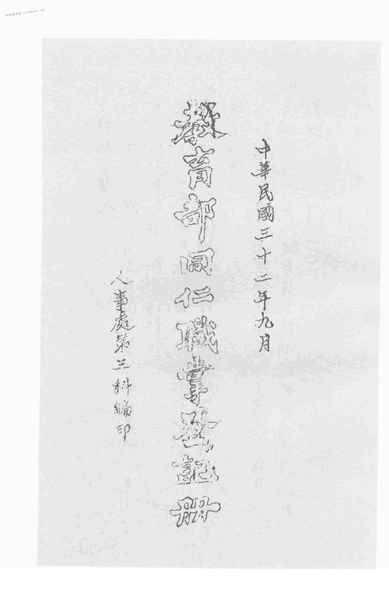 中華民國三十二年九月
教育部同仁職掌登記冊
人事處第三科編印